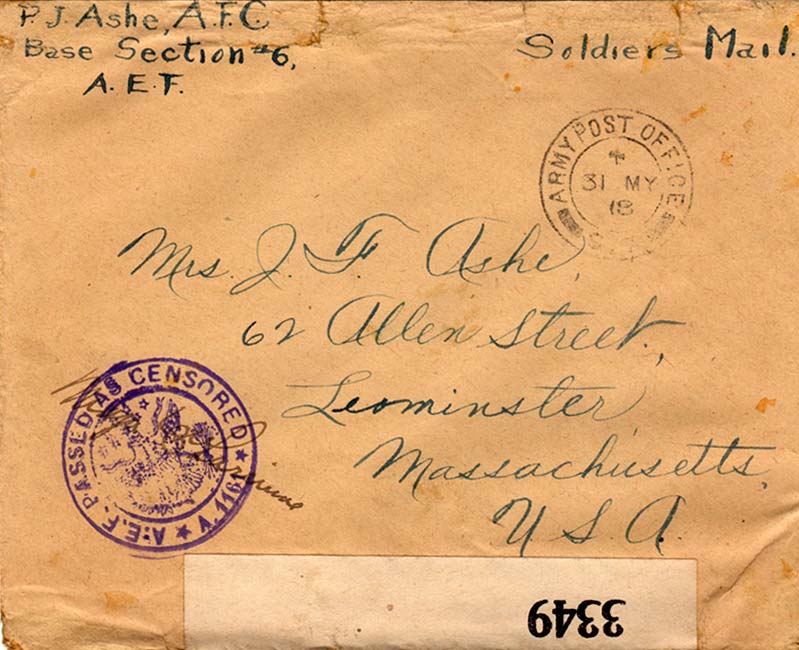 P. J. Ashe, A.F.C
Base Section #6,
A. E. F.
Soldiers Mail.
ARMY POST OFFICE
31 MY
18
Mrs. J. F. Ashe,
62 Allen Street,
Leominster,
Massachusetts,
U S. A.
A.E.F. PASSED AS CENSORED
3349